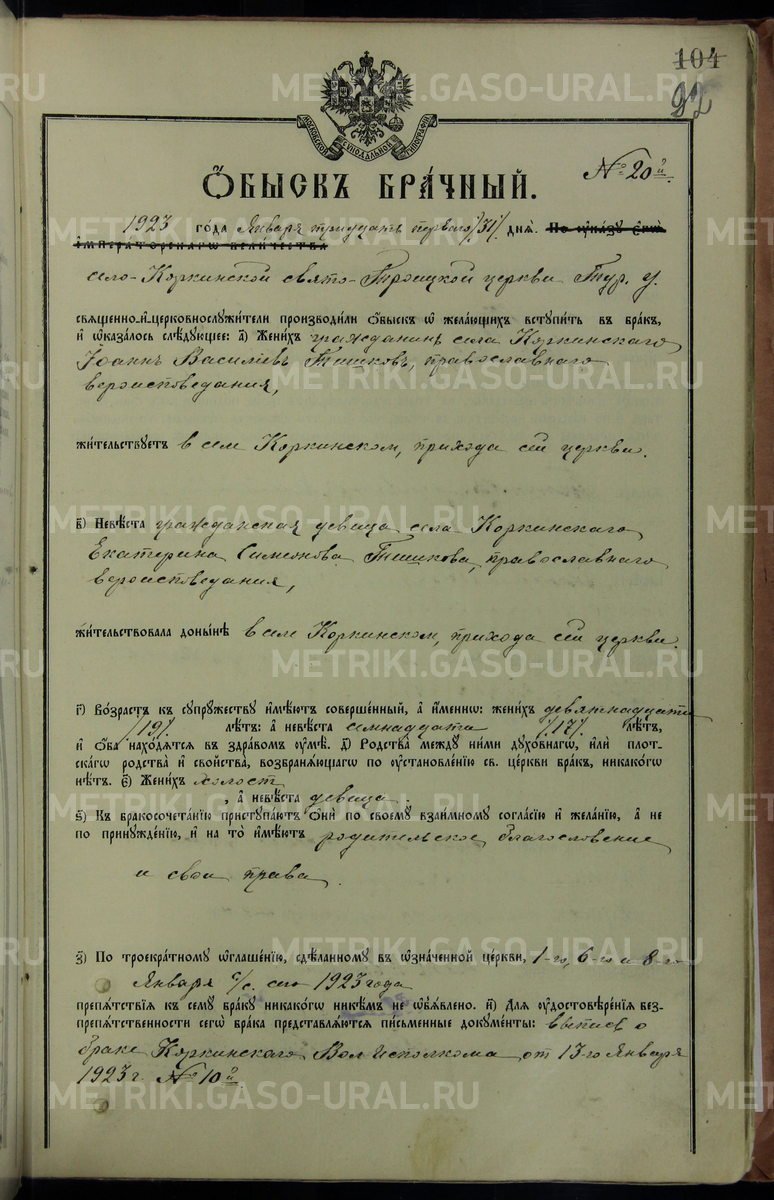 104
92
МОСКОВСКОЙ СУНОДАЛЬНОЙ ТИПОГРАФІИ
№ 20й.
Ѻ҆БЫСКЪ БРА́ЧНЫЙ.
1923 го́да Января тридцать перваго /31/ днѧ̀. По ᲂу҆ка́зу Є҆гѡ̀
и҆мператорскагѡ величества
село-Коркинской свято-Троицкой церкви Тур. у.
свѧще́нно-и҆-церковнослꙋжи́тели производи́ли Ѻ҆быскъ ѡ҆ жела́ющихъ встꙋпи́ть въ бра́къ,
и҆ ѡ҆каза́лось слѣ́дꙋющее: а҃) Жени́хъ гражданинъ села Коркинскаго
Іоаннъ Василіевъ Тишковъ, православнаго
вероисповедания,
жи́тельствꙋетъ в селе Коркинском, прихода сей церкви.
в҃) Невѣ́ста гражданская девица села Коркинскаго
Екатерина Симеонова Тишкова, православнаго
вероисповедания,
жи́тельствовала доны́нѣ в селе Коркинском, прихода сей церкви.
г҃) Во́зрастъ къ сꙋпрꙋ́жествꙋ и҆мѣ́ютъ соверше́нный, а҆ и҆́менно: жени́хъ девятнадцати
/19/ лѣ́тъ: а҆ невѣ́ста семнадцати /17/ лѣ́тъ,
и҆ ѻ҆́ба нахо́дѧтсѧ въ здра́вомъ ᲂу҆мѣ̀. д҃) Родства̀ междꙋ̀ ни́ми дꙋхо́внагѡ, и҆лѝ плот-
ска́гѡ родства̀ и҆ сво́йства, возбранѧ́ющагѡ по ᲂу҆становле́нїю св. це́ркви бра́къ, никако́гѡ
нѣ́тъ. є҃) Жени́хъ холост
, а҆ невѣ́ста девица.
ѕ҃) Къ бракосочета́нїю пристꙋпа́ютъ Ѻ҆нѝ по своемꙋ̀ взаи́мномꙋ согла́сїю и҆ жела́нїю, а҆ не
по принꙋжде́нїю, и҆ на то̀ и҆мѣ́ютъ родительское благословение
и свои права.
з҃) По троекра́тномꙋ ѡ҆глаше́нїю, сдѣ́ланномꙋ въ ѡ҆зна́ченной це́ркви, 1-го, 6-го и 8-го
Января с/с. сего 1923 года
препѧ́тствїѧ къ семꙋ̀ бра́кꙋ никако́гѡ никѣ́мъ не ѡ҆б̾ѧ́влено. и҃) Для ᲂу҆достовѣре́нїѧ без-
препѧ́тственности сегѡ̀ бра́ка представлѧ́ютсѧ пи́сьменные докꙋме́нты: выпись о
браке Коркинскаго Вол Исполкома от 13-го Января
1923 г. № 10й.
METRIKI.GASO-URAL.RU